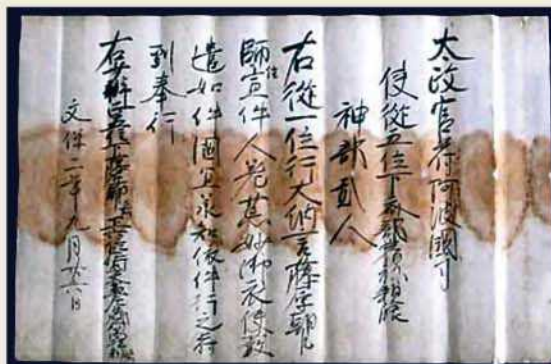 太政官符阿波國司
使従五位下斎部宿祢親
神部貳人
右従一位行大納言藤原朝臣
師信宣件人差荒妙御衣使發
遣如件國宜承知依件行之符
到奉行
正五位下藤原
文保二年九月廿六日